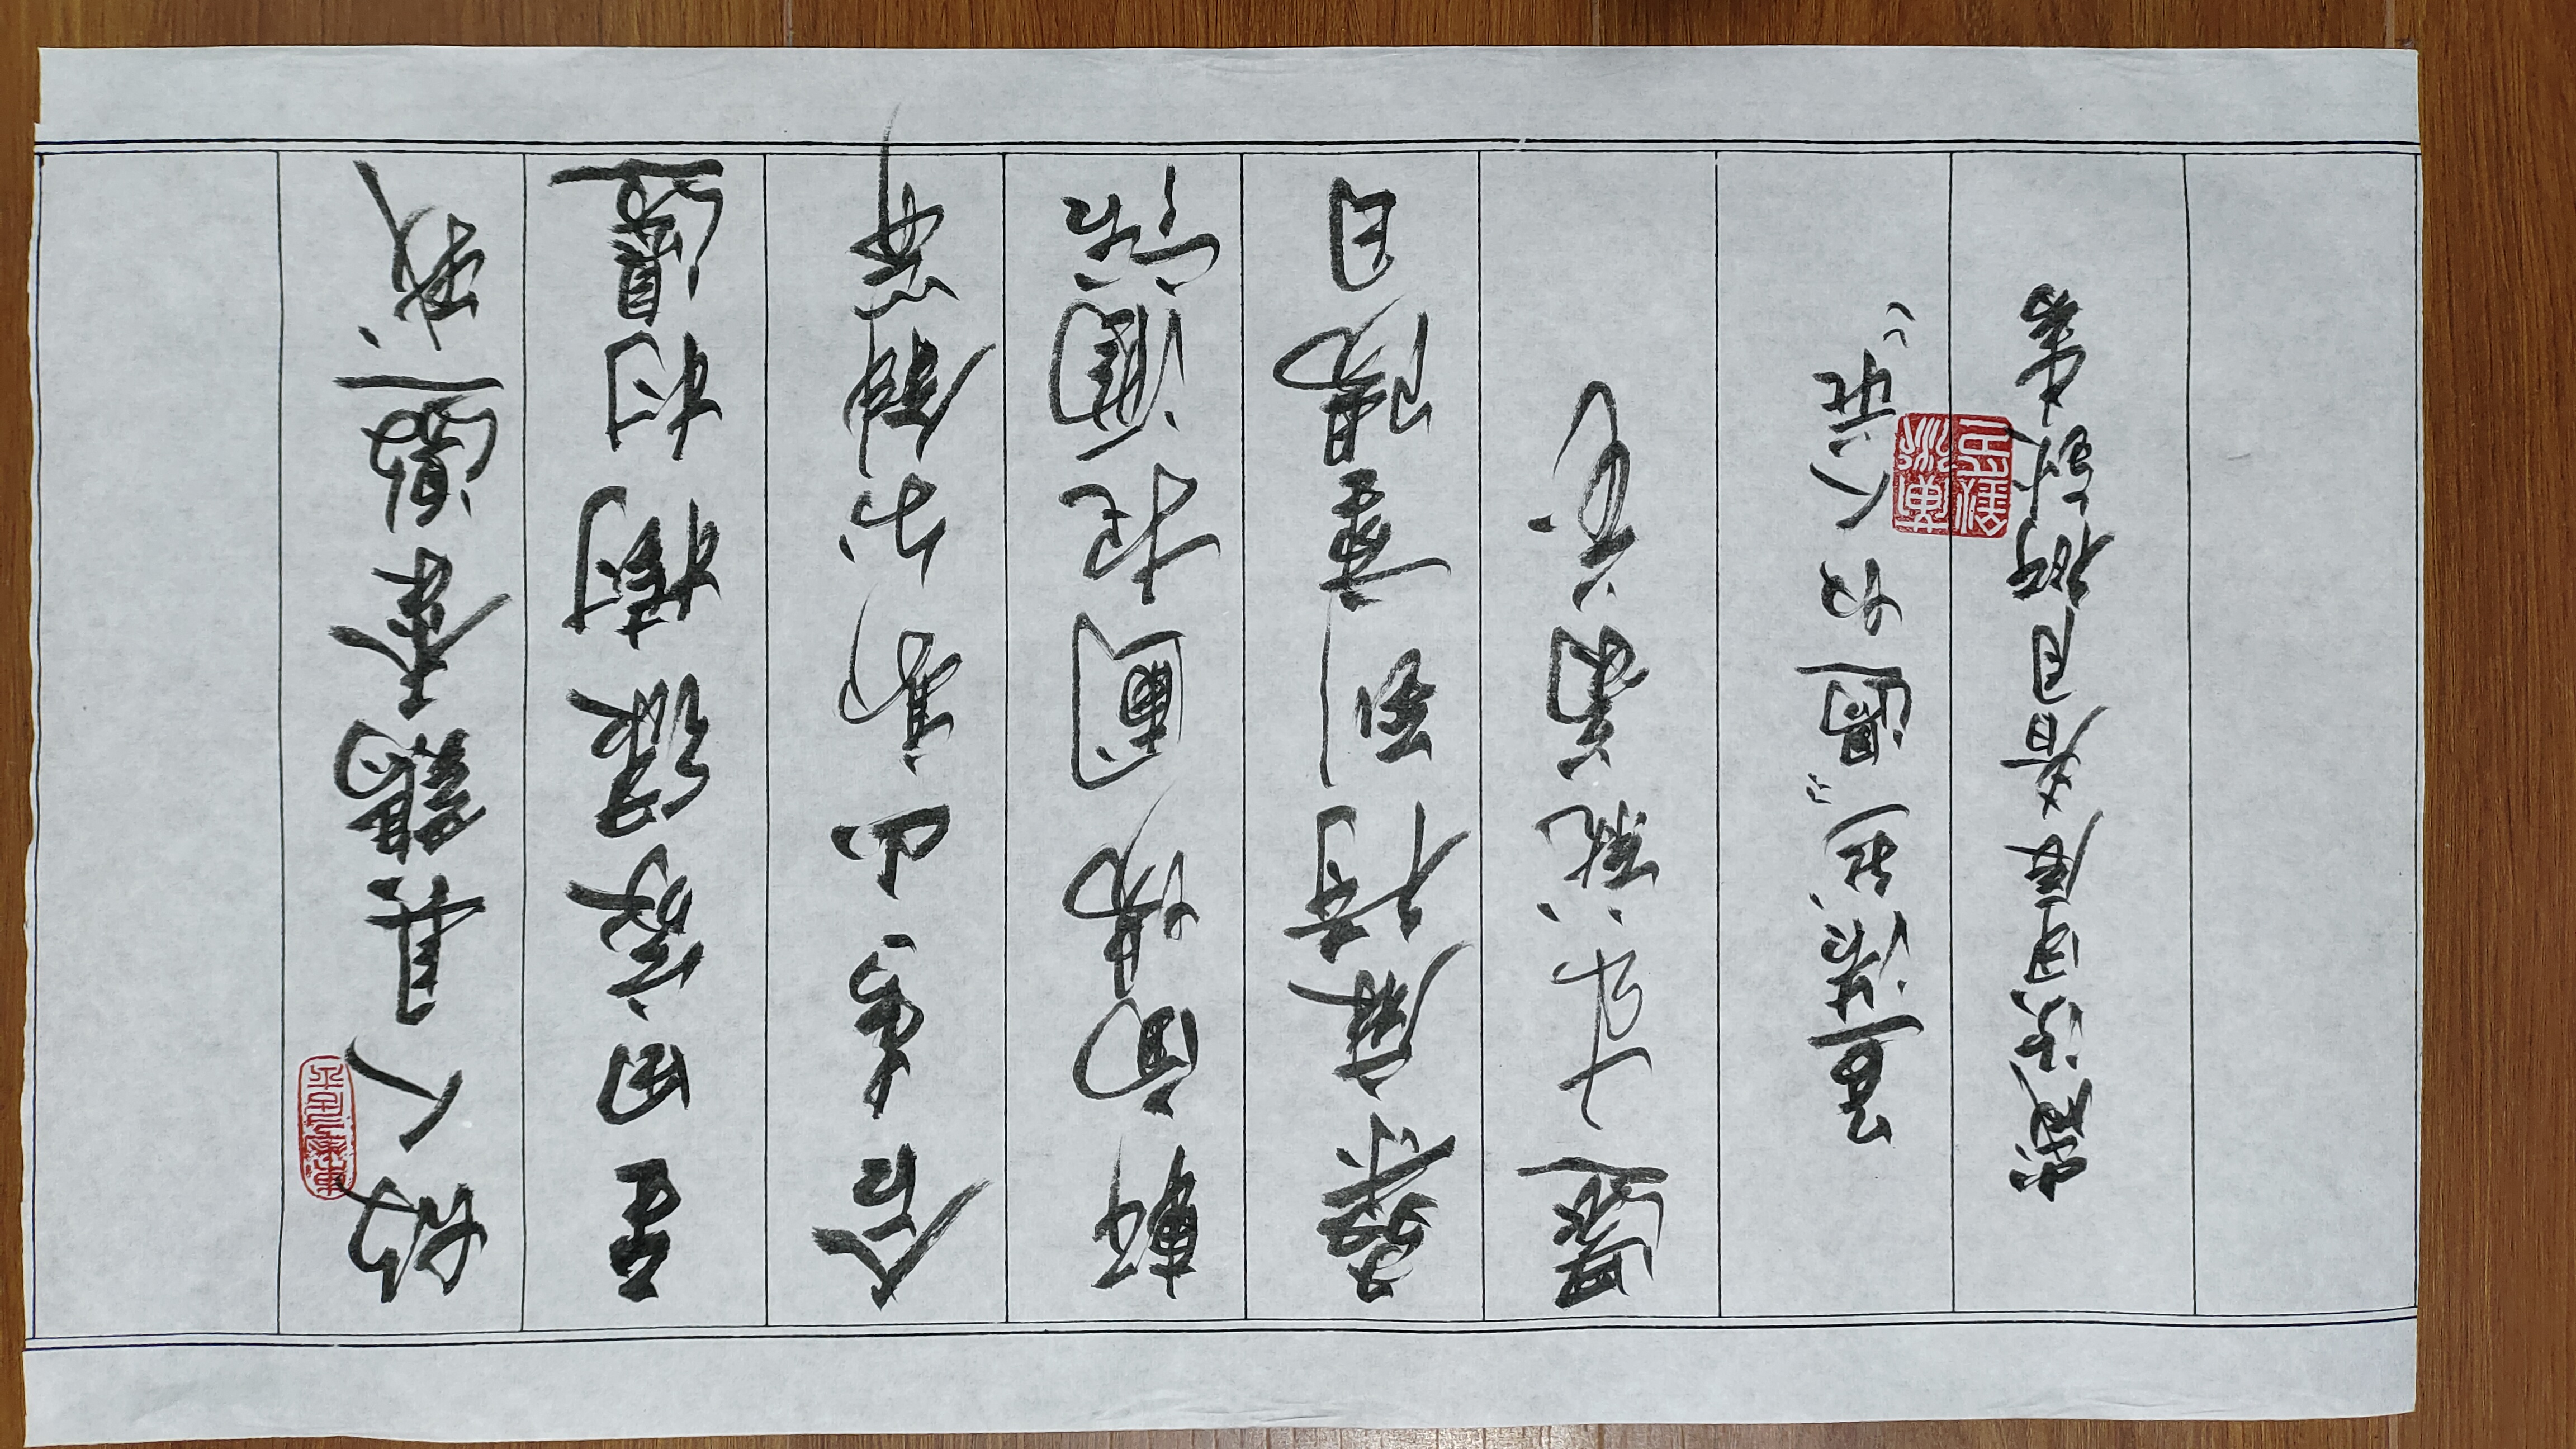 故人具鷄黍邀我
至田家綠樹村邊
合青山郭外斜開
軒面場圃把酒話
桑麻待到重陽日
還來就菊花
孟浩然《過故人莊》
歲次甲辰春月衍書
居士
黄衍
印